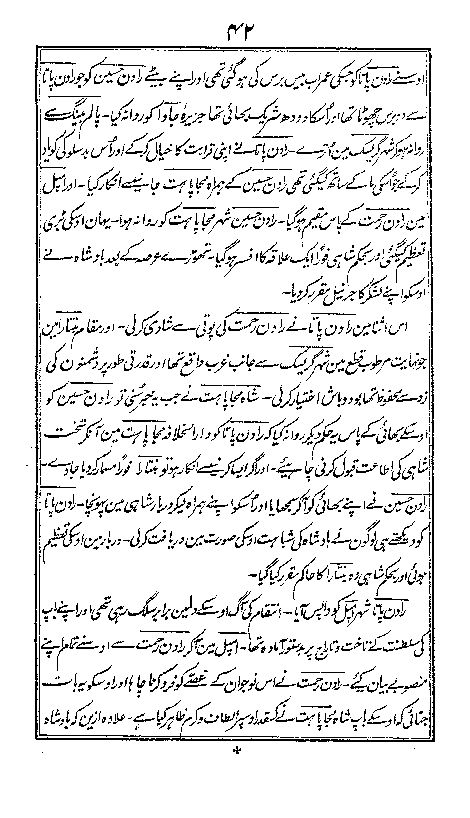 ۴۲
اوسنے رادن پاتا کو جسکی عمر اب بیس برس کی ہو گئی تھی اور اپنے بیٹے رادن حسین کو جو رادن پاتا
سے دو برس چھوٹا تھا اور اُسکا دودھ شریک بھائی تھا جزیرہ جاوا کو روانہ کیا۔ پالم بینگ سے
روانہ ہوکر شہر گریسک مین اُترے۔ رادن پاتا نے اپنی قرابت کا خیال کرکے اور اُس بدسلوکی کو یاد
کرکے جو اُسکی ما کے ساتھ کیگئی تھی رادن حسین کے ہمراہ مجاپاہت جانیسے انکار کیا۔ اور امپل
مین رادن رحمت کے پاس مقیم ہو گیا۔ رادن حسین شہر مجاپاہت کو روانہ ہوا۔ یہان اوسکی بڑی
تعظیم کیگئی اور بحکم شاہی فوراً ایک علاقہ کا افسر ہو گیا۔ تھوڑے عرصہ کے بعد بادشاہ نے
اوسکو اپنے لشکر کا جرنیل مقرر کر دیا۔
اس اثنا مین رادن پاتا نے رادن رحمت کی پوتی سے شادی کر لی۔ اور مقام بنتارا مین
جو نہایت مرطوب قطع مین شہر گریسک سے جانب غرب واقع تھا اور قدرتی طور پر دشمنون کی
زد سے محفوظ تھا بود و باش اختیار کر لی۔ شاہ مجاپاہت نے جب یہ خبر سُنی تو رادن حسین کو
اوسکے بھائی کے پاس یہ حکم دیکر روانہ کیا کہ رادن پاتا کو دارالخلافہ مجاپاہت مین آنکر تخت
شاہی کی اطاعت قبول کرنی چاہیئے۔ اور اگر ایسا کرنیسے انکار ہو تو بنتارا فوراً مسمار کر دیا جاوے۔
رادن حسین نے اپنے بھائی کو آکر سمجھایا اور اُسکو اپنے ہمراہ لیکر دربار شاہی مین پہونچا۔ رادن پاتا
کو دیکھتے ہی لوگون نے بادشاہ کی شباہت اوسکی صورت مین دریافت کر لی۔ دربار مین اوسکی تعظیم
ہوئی اور بحکم شاہی وہ بنتارا کا حاکم مقرر کیا گیا۔
رادن پاتا شہر امپل کو واپس آیا۔ انتقام کی آگ اوسکے دلمین برابر سلگ رہی تھی اور اپنے باپ
کی سلطنت کے تاخت و تاراج پر بدستور آمادہ تھا۔ امپل مین آکر رادن رحمت سے اوسنے تمام اپنے
منصوبے بیان کئے۔ رادن رحمت نے اس نوجوان کے غصّے کو فرو کرنا چاہا اور اوسکو یہ بات
جتائی کہ اوسکے باپ شاہ مجاپاہت نے کسقدر اوسپر الطاف و کرم ظاہر کیا ہے۔ علاوہ ازین کہ بادشاہ